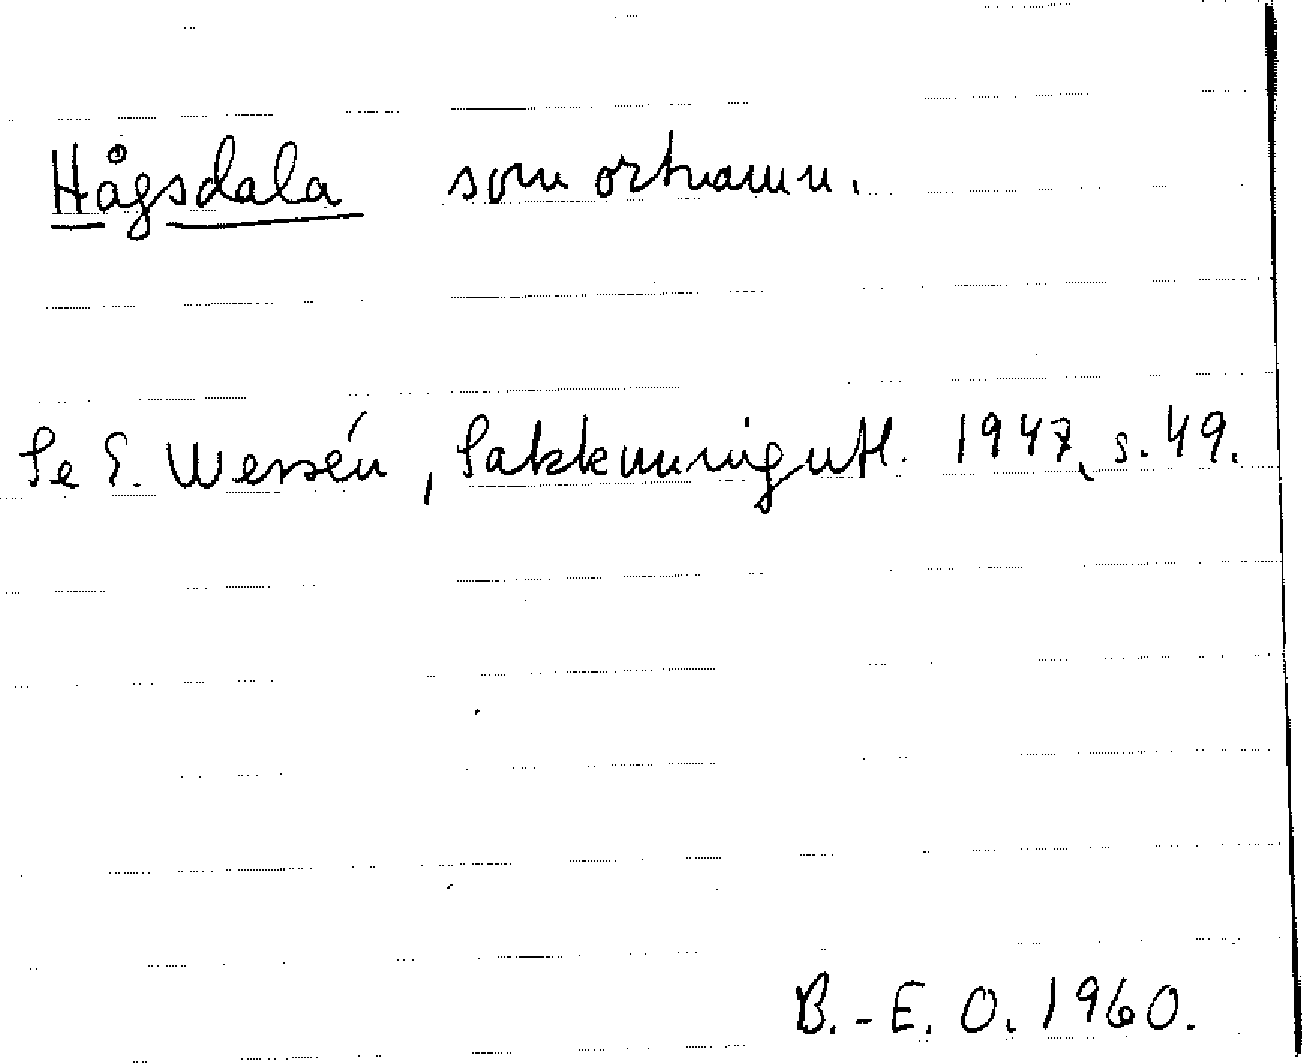 Hågsdala som ortnamn.
Se E. Wessén, Sakkunnigutl. 1947, s. 49.
B.-E. O. 1960.